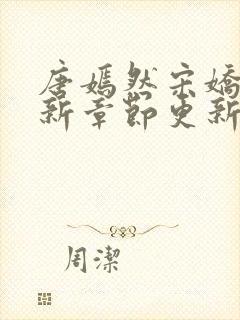 唐嫣然宋嬌
新章節更新
周潔